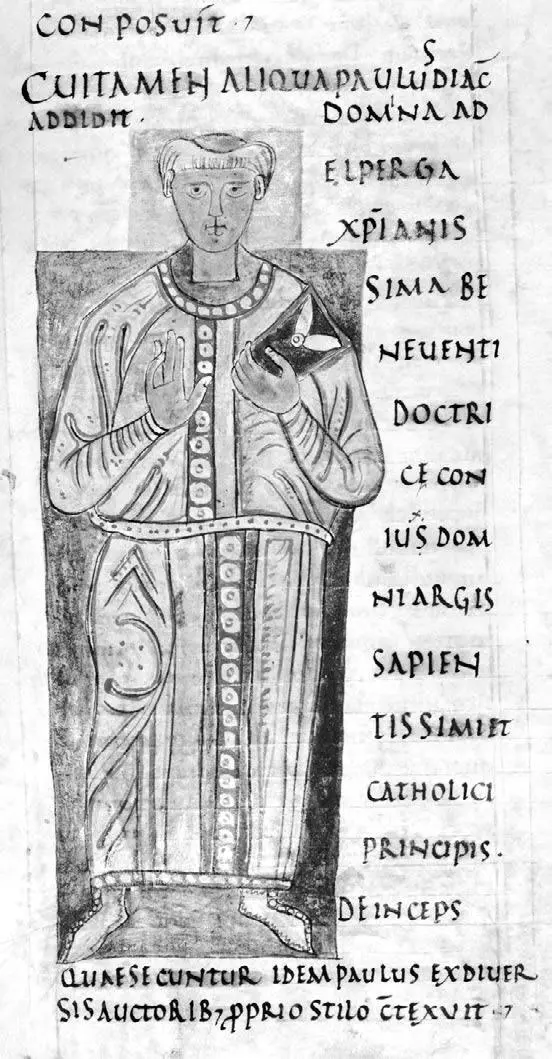 CONPOSUIT·7
CUITAMEN ALIQUA PAULUS DIAC̄
ADDIDIT· DOMINA AD
ELPERGA
XP̄IANIS
SIMA BE
NEUENTI
DOCTRI
CĘ CON
IUS DOM
NI ARGIS
SAPIEN
TISSIMI ET
CATHOLICI
PRINCIPIS·
DEINCEPS
QUAE SECUNTUR IDEM PAULUS EX DIUER
SIS AUCTORIB7 ꝓPRIO STILO C̄TEXUIT·7